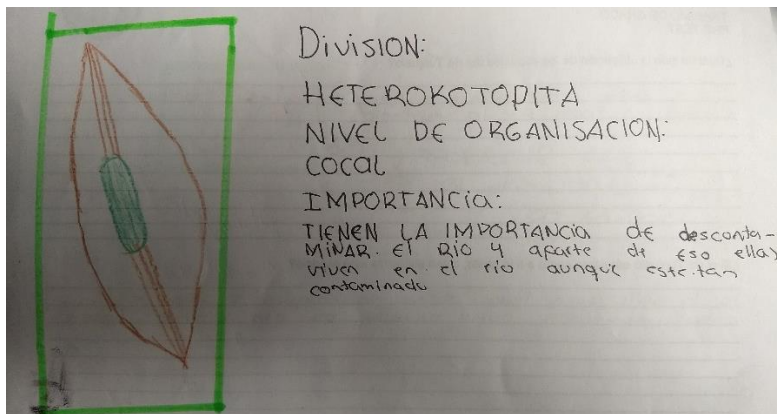 DIVISION:
HETEROKOTOPITA
NIVEL DE ORGANISACION:
COCAL
IMPORTANCIA:
TIENEN LA IMPORTANCIA DE desconta-
MINAR. El RIO Y aparte de eso ellas
viven en el rio aunque este tan
contaminado